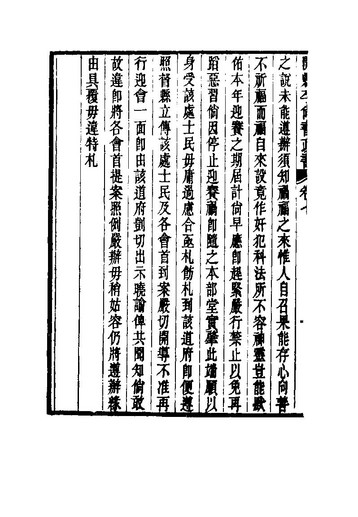 開縣李尚書政書 卷七
之說未能遵辦須知禍福之來惟人自召果能存心向善
不祈福而福自來設竟作奸犯科法所不容神靈豈能默
佑本年迎賽之期居計尙早應卽趕緊嚴行禁止以免再
蹈惡習倘因停止迎賽禍卽隨之本部堂實肇此端願以
身受該處士民毋庸過慮合亟札飭札到該道府卽便遵
照督縣立傳該處士民及各會首到案嚴切開導不准再
行迎會一面卽由該道府剴切出示曉諭俾共聞知倘敢
故違卽將各會首提案照例嚴辦毋稍姑容仍將遵辦緣
由具覆毋違特札